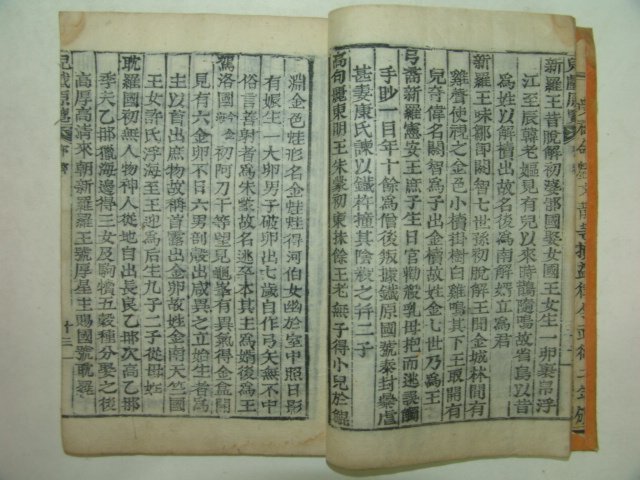 新羅王昔脫解初琓邵國娶女國王女生一卵裹帛浮
江至辰韓老嫗見有兒以來時鵲隨鳴故省鳥以昔
爲姓以解櫝出故名後爲南解婿立爲君
新羅王味鄒即閼智七世孫初脫解王聞金城林間有
雞聲使視之金色小櫝掛樹白雞鳴其下王取開有
兒奇偉名閼智爲子出金櫝故姓金七世乃爲王
弓裔新羅憲安王庶子生日官勸殺乳母抱而逃誤觸
手眇一目年十餘爲僧後叛據鐵原國號泰封 虐
甚妻康氏諫以鐵杵撞其陰殺之幷二子
高句麗東明王朱蒙初東扶餘王老無子得小兒於鯤
淵金色蛙形名金蛙蛙得河伯女幽於室中照日影
有娠生一大卵男子破卵出七歲自作弓矢無不中
俗言善射者爲朱蒙故名逃卒本其主爲婿後爲王
駕洛國 初阿刀干等望見龜峯有異氣得金盒開
見有六金卵不日六男剖殼出咸異之立始生者
主以首出庶物故稱首露出金卵故姓金南天竺國
王女許氏浮海至王迎爲后生九子二子從母姓
耽羅國初無人物神人從地自出長良乙那次高乙那
季夫乙那獵海邊得三女及駒犢五穀種分娶之後
高厚高清來朝新羅羅王號厚星主賜國號耽羅
兒戱原覽
十三